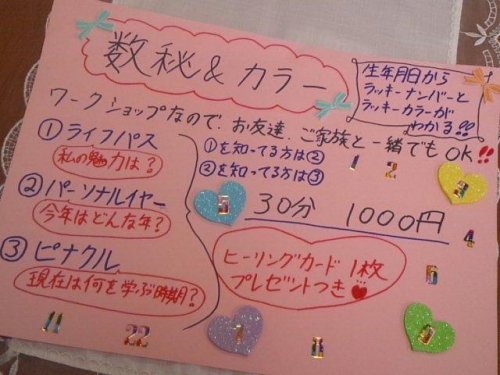 数秘&カラー
生年月日から
ラッキーナンバーと
ラッキーカラーが
わかる!!
ワークショップなので、お友達、ご家族と一緒でもOK!!
①ライフパス
私の魅力は?
①を知ってる方は②
②を知ってる方は③
②パーソナルイヤー
今年はどんな年?
③ピナクル
現在は何を学ぶ時期?
30分 1000円
ヒーリングカード1枚
プレゼントつき
1
2
3
4
5
6
7
8
9
11
22